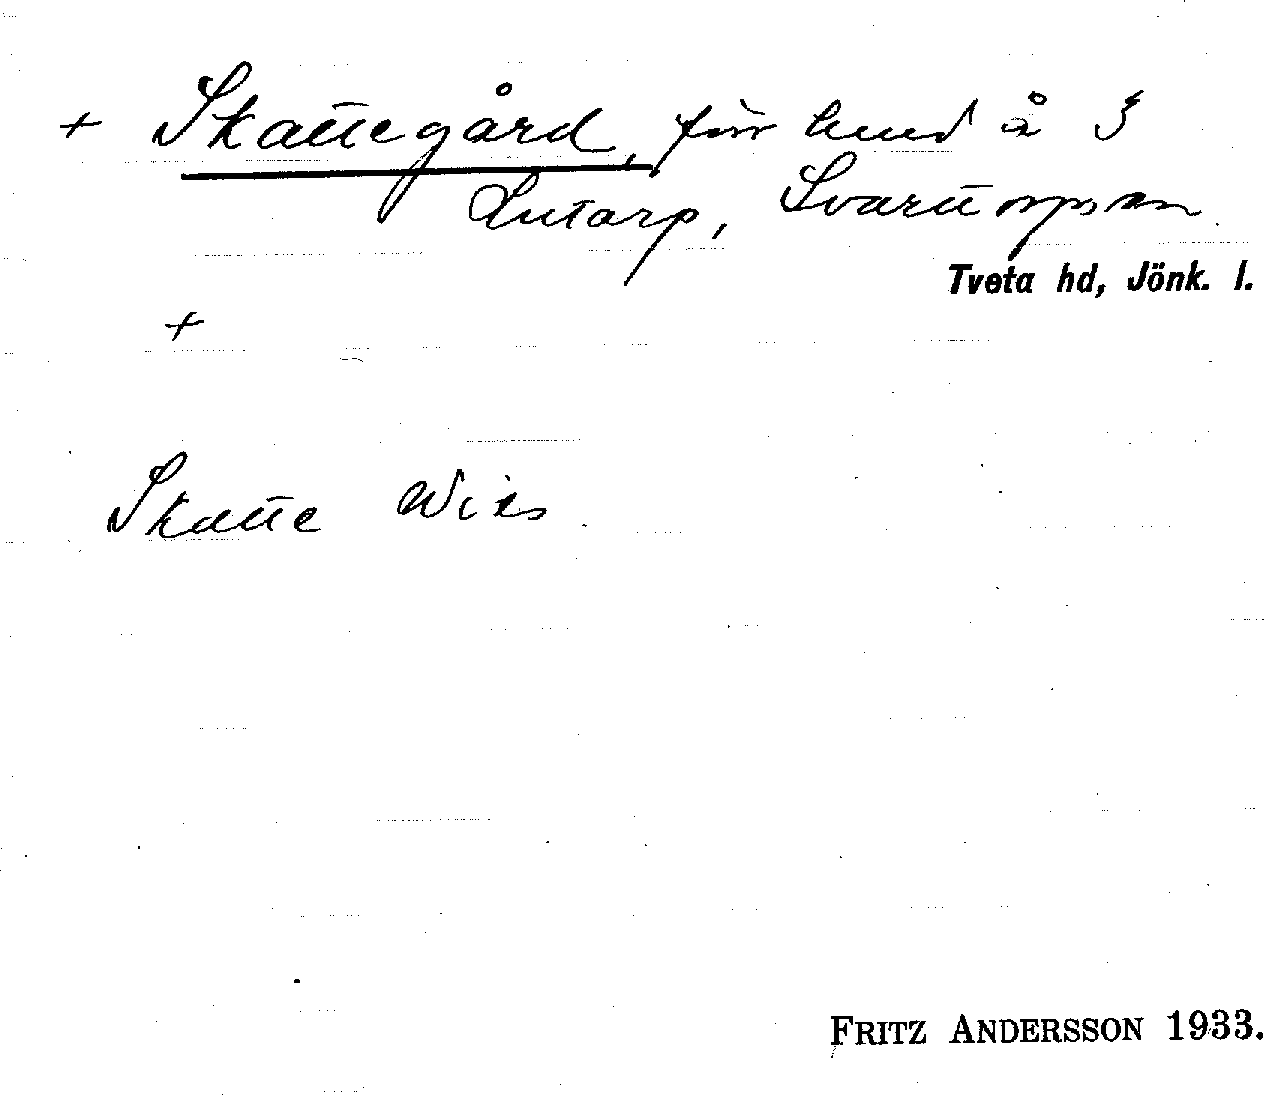 + Skattegård, förr hmd å §
Lutarp, Svarttorps sn
Tveta hd, Jönk. l.
+
Skatte
FRITZ ANDERSSON 1933.